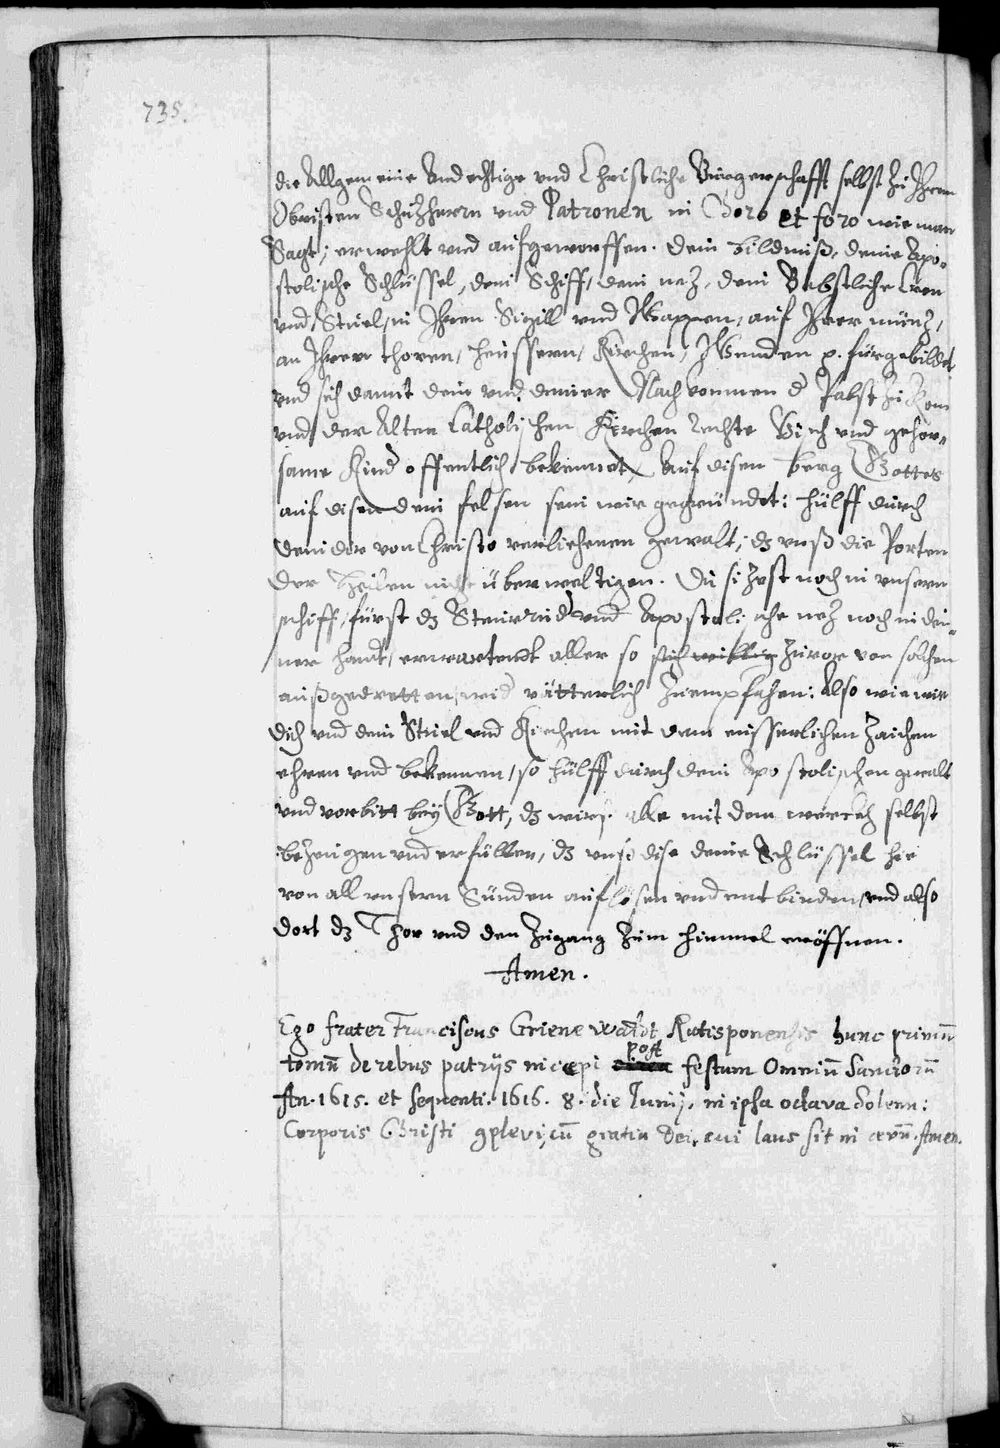 735.
die Allgemeine Andechtige vnd Christliche Burgerschafft selbst zu Ihrem
Obristen Schuzherrn vnd Patronen in Choro et foro wie man
Sagt, erwehlt vnd aufgeworffen. dein bildniß, deine Apo-
stolische Schlüssel, dein Schiff, dein nez, dein Bäbstliche Cron
vnd Stuel, in Ihren Sigill vnd Wappen, auf Ihrer münz,
an Ihren thoren, heüssern, Kirchen, Wenden p. fürgebildet
vnd sich damit dein vnd deiner Nachkommen d Pabst zu Rom
vnd der Alten Catholischen Kirchen rechte vnd gehor-
same Kind offentlich bekennet, Auf disen berg Gottes
auf disen dein felsen sein wir gegründet: hülff durch
dein dir von Christo verliehenen gewalt, dz vnß die Porten
der Hellen nicht überweltigen. Du sizest noch in vnserm
schiff, fürst dz Steirrud vnd Apostolische nez noch in dei-
ner handt, erwartendt aller so zuvor von solchen
außgedretten, wid vätterlich zuempfahen: Also wie wir
dich vnd dein Stuel vnd Kirchen mit dem eusserlichen zaichen
ehren vnd bekennen, so hülff durch dein Apostolischen gwalt
vnd vorbitt bey Gott, dz wirs alle mit dem werckh selbst
bezeugen vnd erfüllen, dz vnß dise deine Schlüssel hie
von all vnsern Sünden auflösen vnd entbinden, vnd also
dort dz Thor vnd den zugang zum himmel eröffnen.
Amen.
Ego frater Franciscus Grienewaldt Ratisponensis hunc primū
tomū de rebus patrijs incœpi post festum Omniū Sanctorū
An. 1615. et sequenti. 1616. 8. die Junij, in ipsa octava Solenn:
Corporis Christi gplevi, cū gratia Dei, cui laus sit in ævū. Amen.